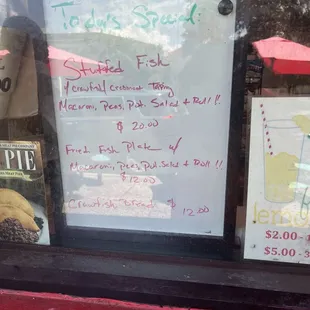 Today's Special:
Stuffed Fish
w/ crawfish/crabmeat
Macaroni, Peas, Pot. Salad & Roll!!
$20.00
Fried Fish Plate w/
Macaroni, Peas, Pot. Salad & Roll!!
$12.00
Crawfish Bread $12.00
PIE
lemon
$2.00
$5.00